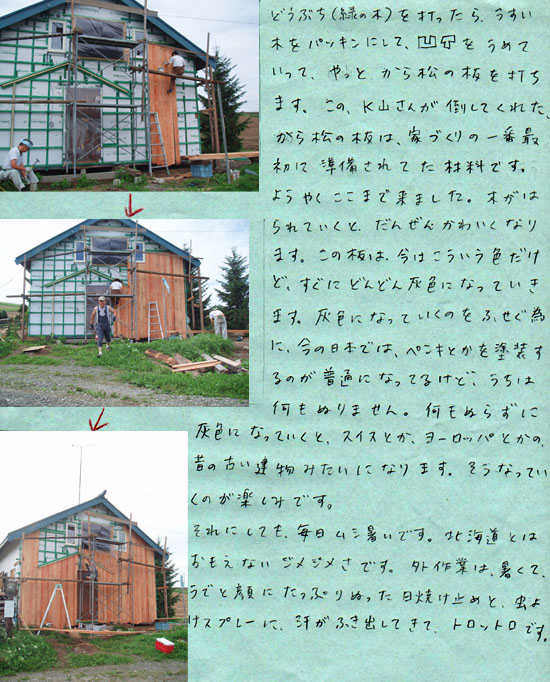 どうぶち(緑の木)を打ったら、うすい
木をパッキンにして、凹凸をうめて
いって、やっと から松の板を打ち
ます。この、K山さんが倒してくれた、
がら松の板は、家づくりの一番最
初に準備されてた材料です。
ようやくここまで来ました。木がは
られていくと、だんぜんかわいくなり
ます。この板は、今はこういう色だけ
ど、すぐにどんどん灰色になっていき
ます。灰色になっていくのをふせぐ為
に、今の日本では、ペンキとかを塗装す
るのが普通になってるけど、うちは
何もぬりません。何もぬらずに
灰色になっていくと、スイスとか、ヨーロッパとかの、
昔の古い建物みたいになります。そうなってい
くのが楽しみです。
それにしても、毎日ムシ暑いです。北海道とは
おもえないジメジメさです。外作業は、暑くて、
うでと顔にたっぷりぬった日焼け止めと、虫よ
けスプレーに、汗がふき出してきて、トロットロです。